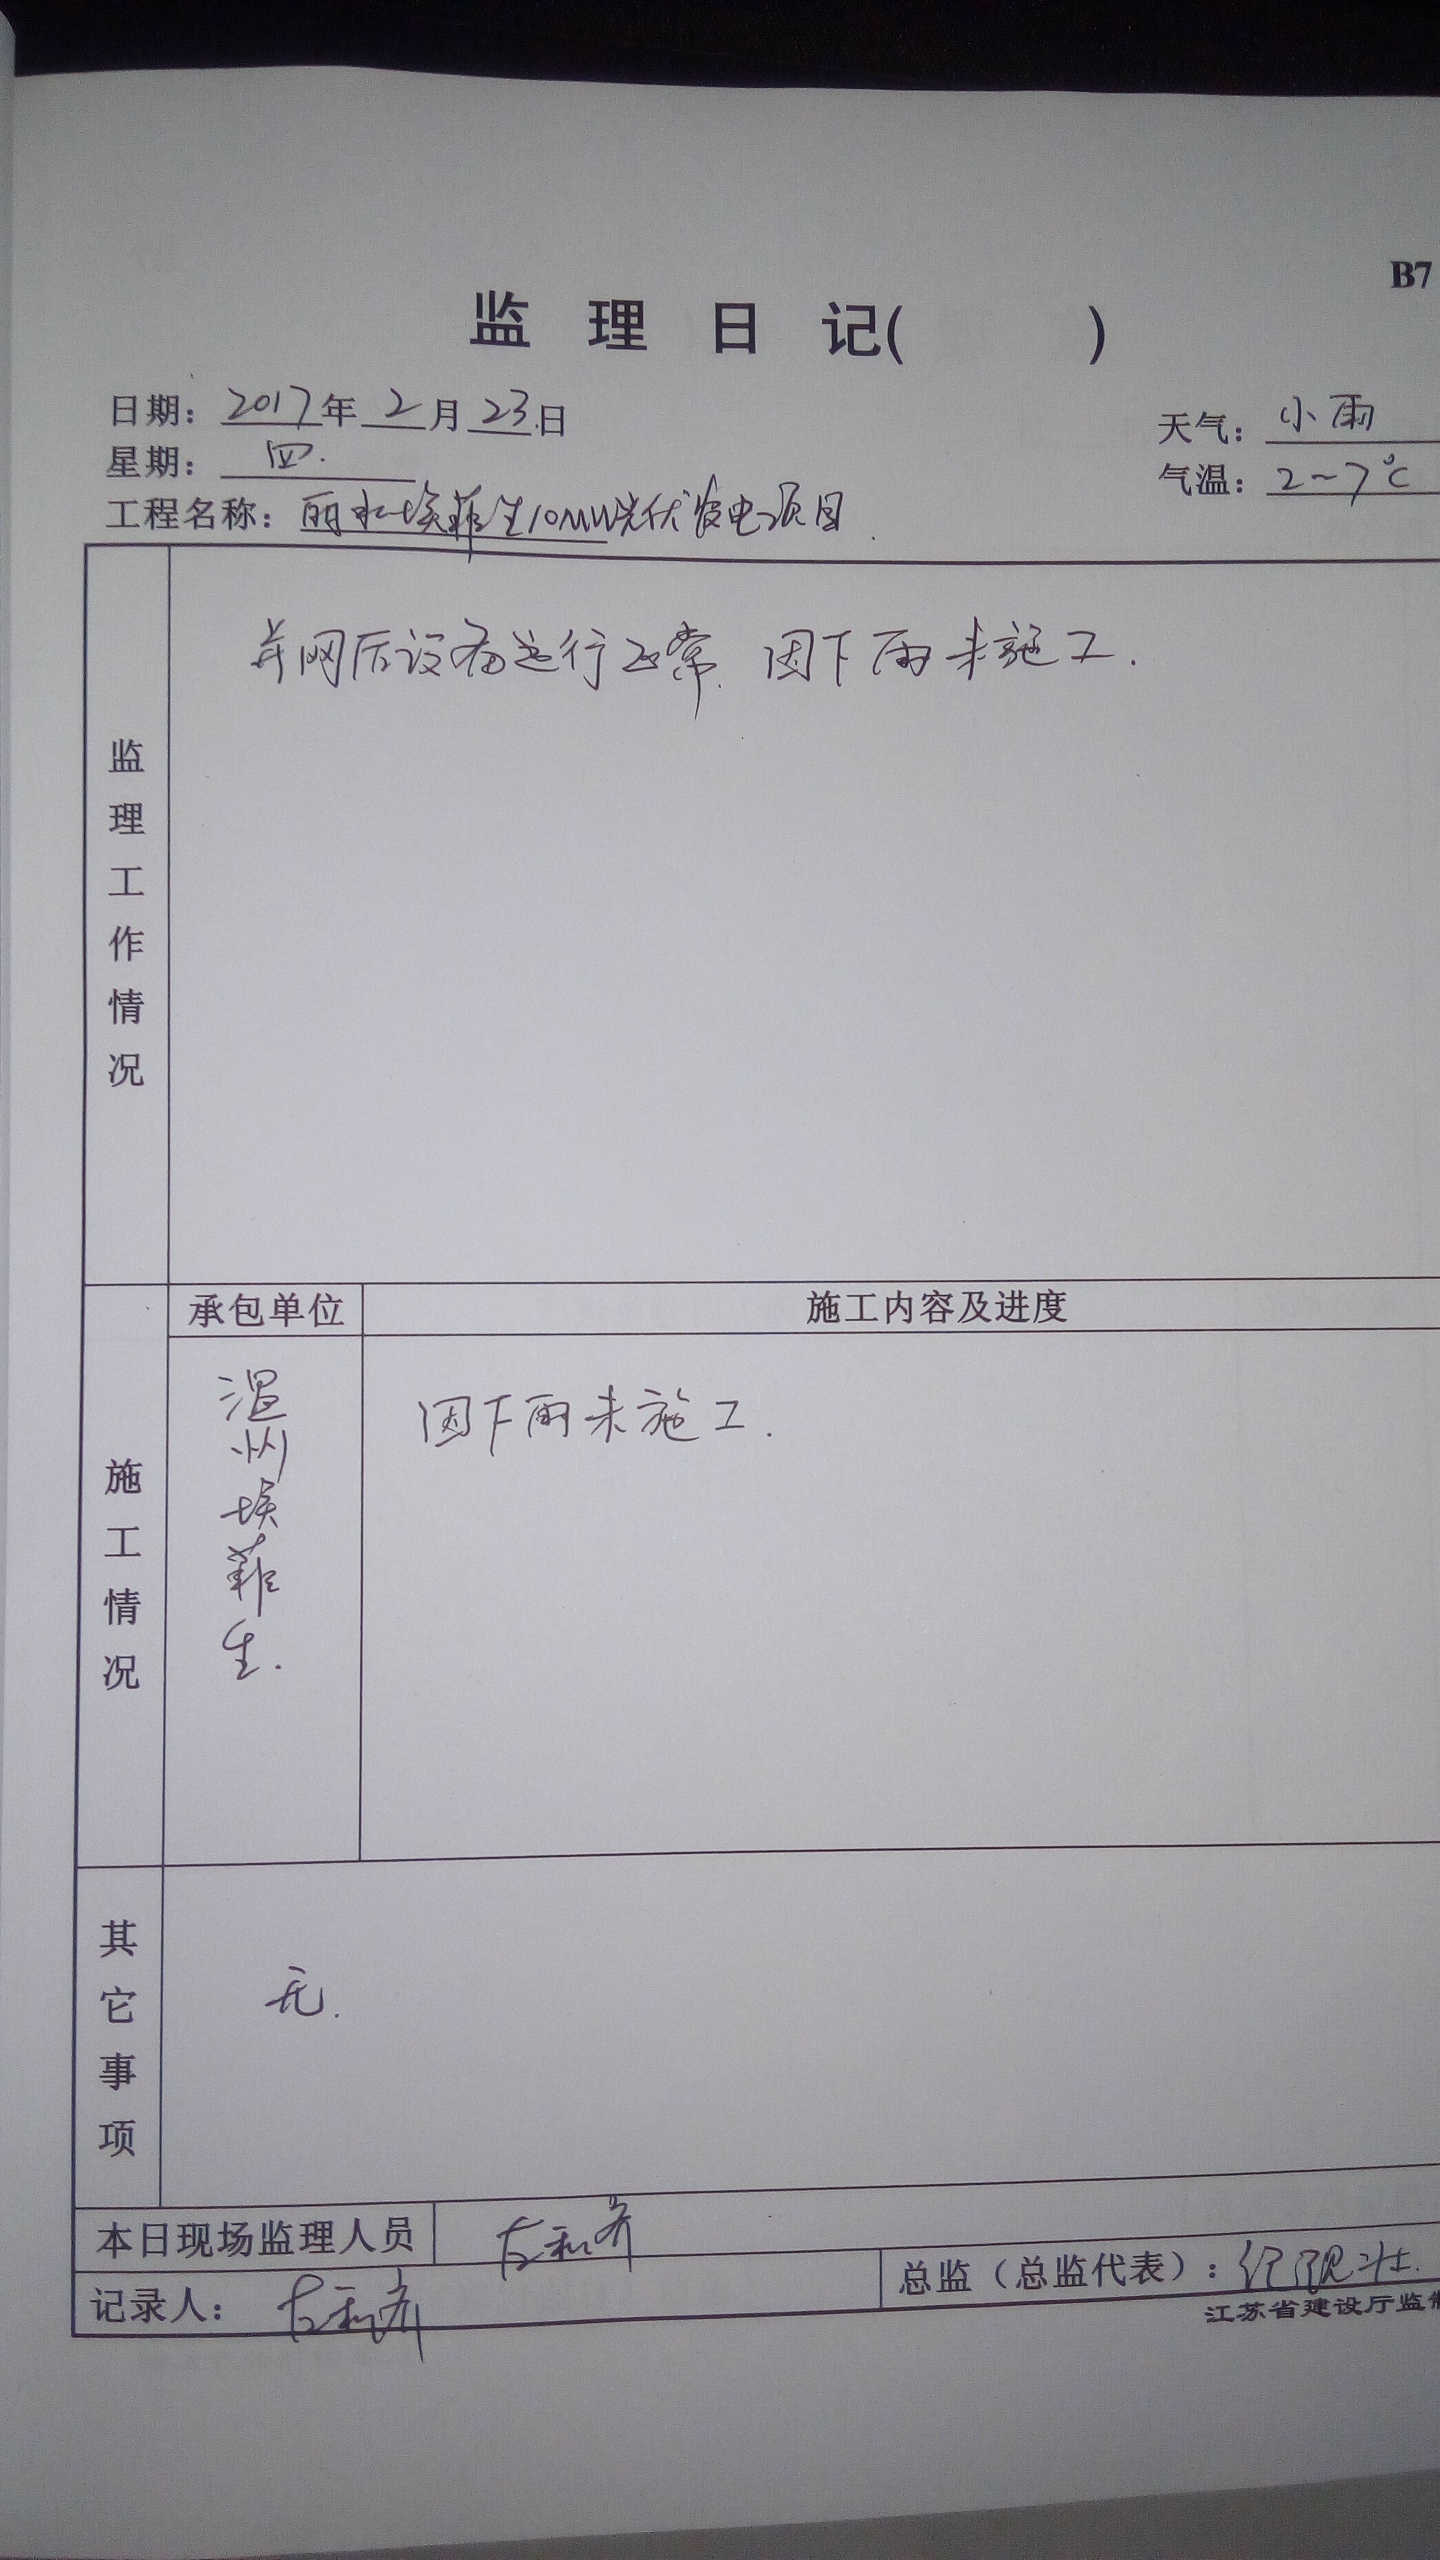 B7
监理日记( )
日期：2017年2月23日
天气：小雨
星期：四.
气温：2~7℃
工程名称：丽水埃菲生10MW光伏发电项目.
监理工作情况
并网后设备运行正常. 因下雨未施工.
施工情况
承包单位
施工内容及进度
温州埃菲生.
因下雨未施工.
其它事项
无.
本日现场监理人员
记录人：
总监（总监代表）：
江苏省建设厅监